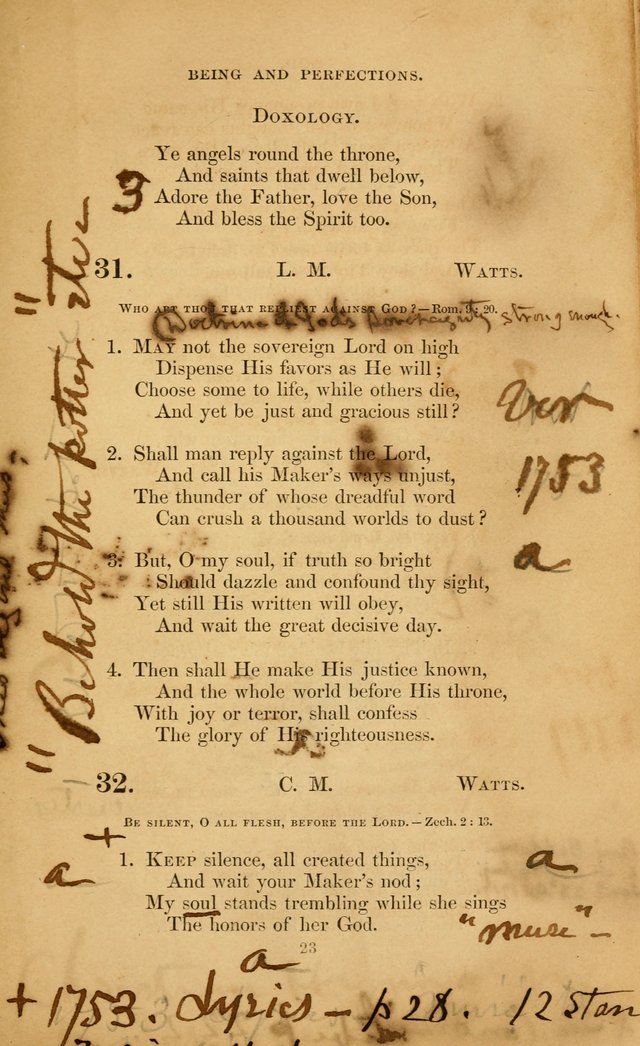 BEING AND PERFECTIONS.
DOXOLOGY.
Ye angels round the throne,
And saints that dwell below,
3
Adore the Father, love the Son,
And bless the Spirit too.
31. L. M. WATTS.
WHO ART THOU THAT REPLIEST AGAINST GOD?—Rom. 9: 20.
(Doctrine of Gods sovereignty strong enough.
1. MAY not the sovereign Lord on high
Dispense His favors as He will;
Choose some to life, while others die,
And yet be just and gracious still?
Ver
1753
a
2. Shall man reply against the Lord,
And call his Maker's ways unjust,
The thunder of whose dreadful word
Can crush a thousand worlds to dust?
3. But, O my soul, if truth so bright
Should dazzle and confound thy sight,
Yet still His written will obey,
And wait the great decisive day.
4. Then shall He make His justice known,
And the whole world before His throne,
With joy or terror, shall confess
The glory of His righteousness.
"Behold the potter" etc
32. C. M. WATTS.
BE SILENT, O ALL FLESH, BEFORE THE LORD.—Zech. 2: 13.
+
a
1. KEEP silence, all created things,
And wait your Maker's nod;
My soul stands trembling while she sings
The honors of her God.
a
"muse"-
23
a
+ 1753. Lyrics - p 28. 12 Stan